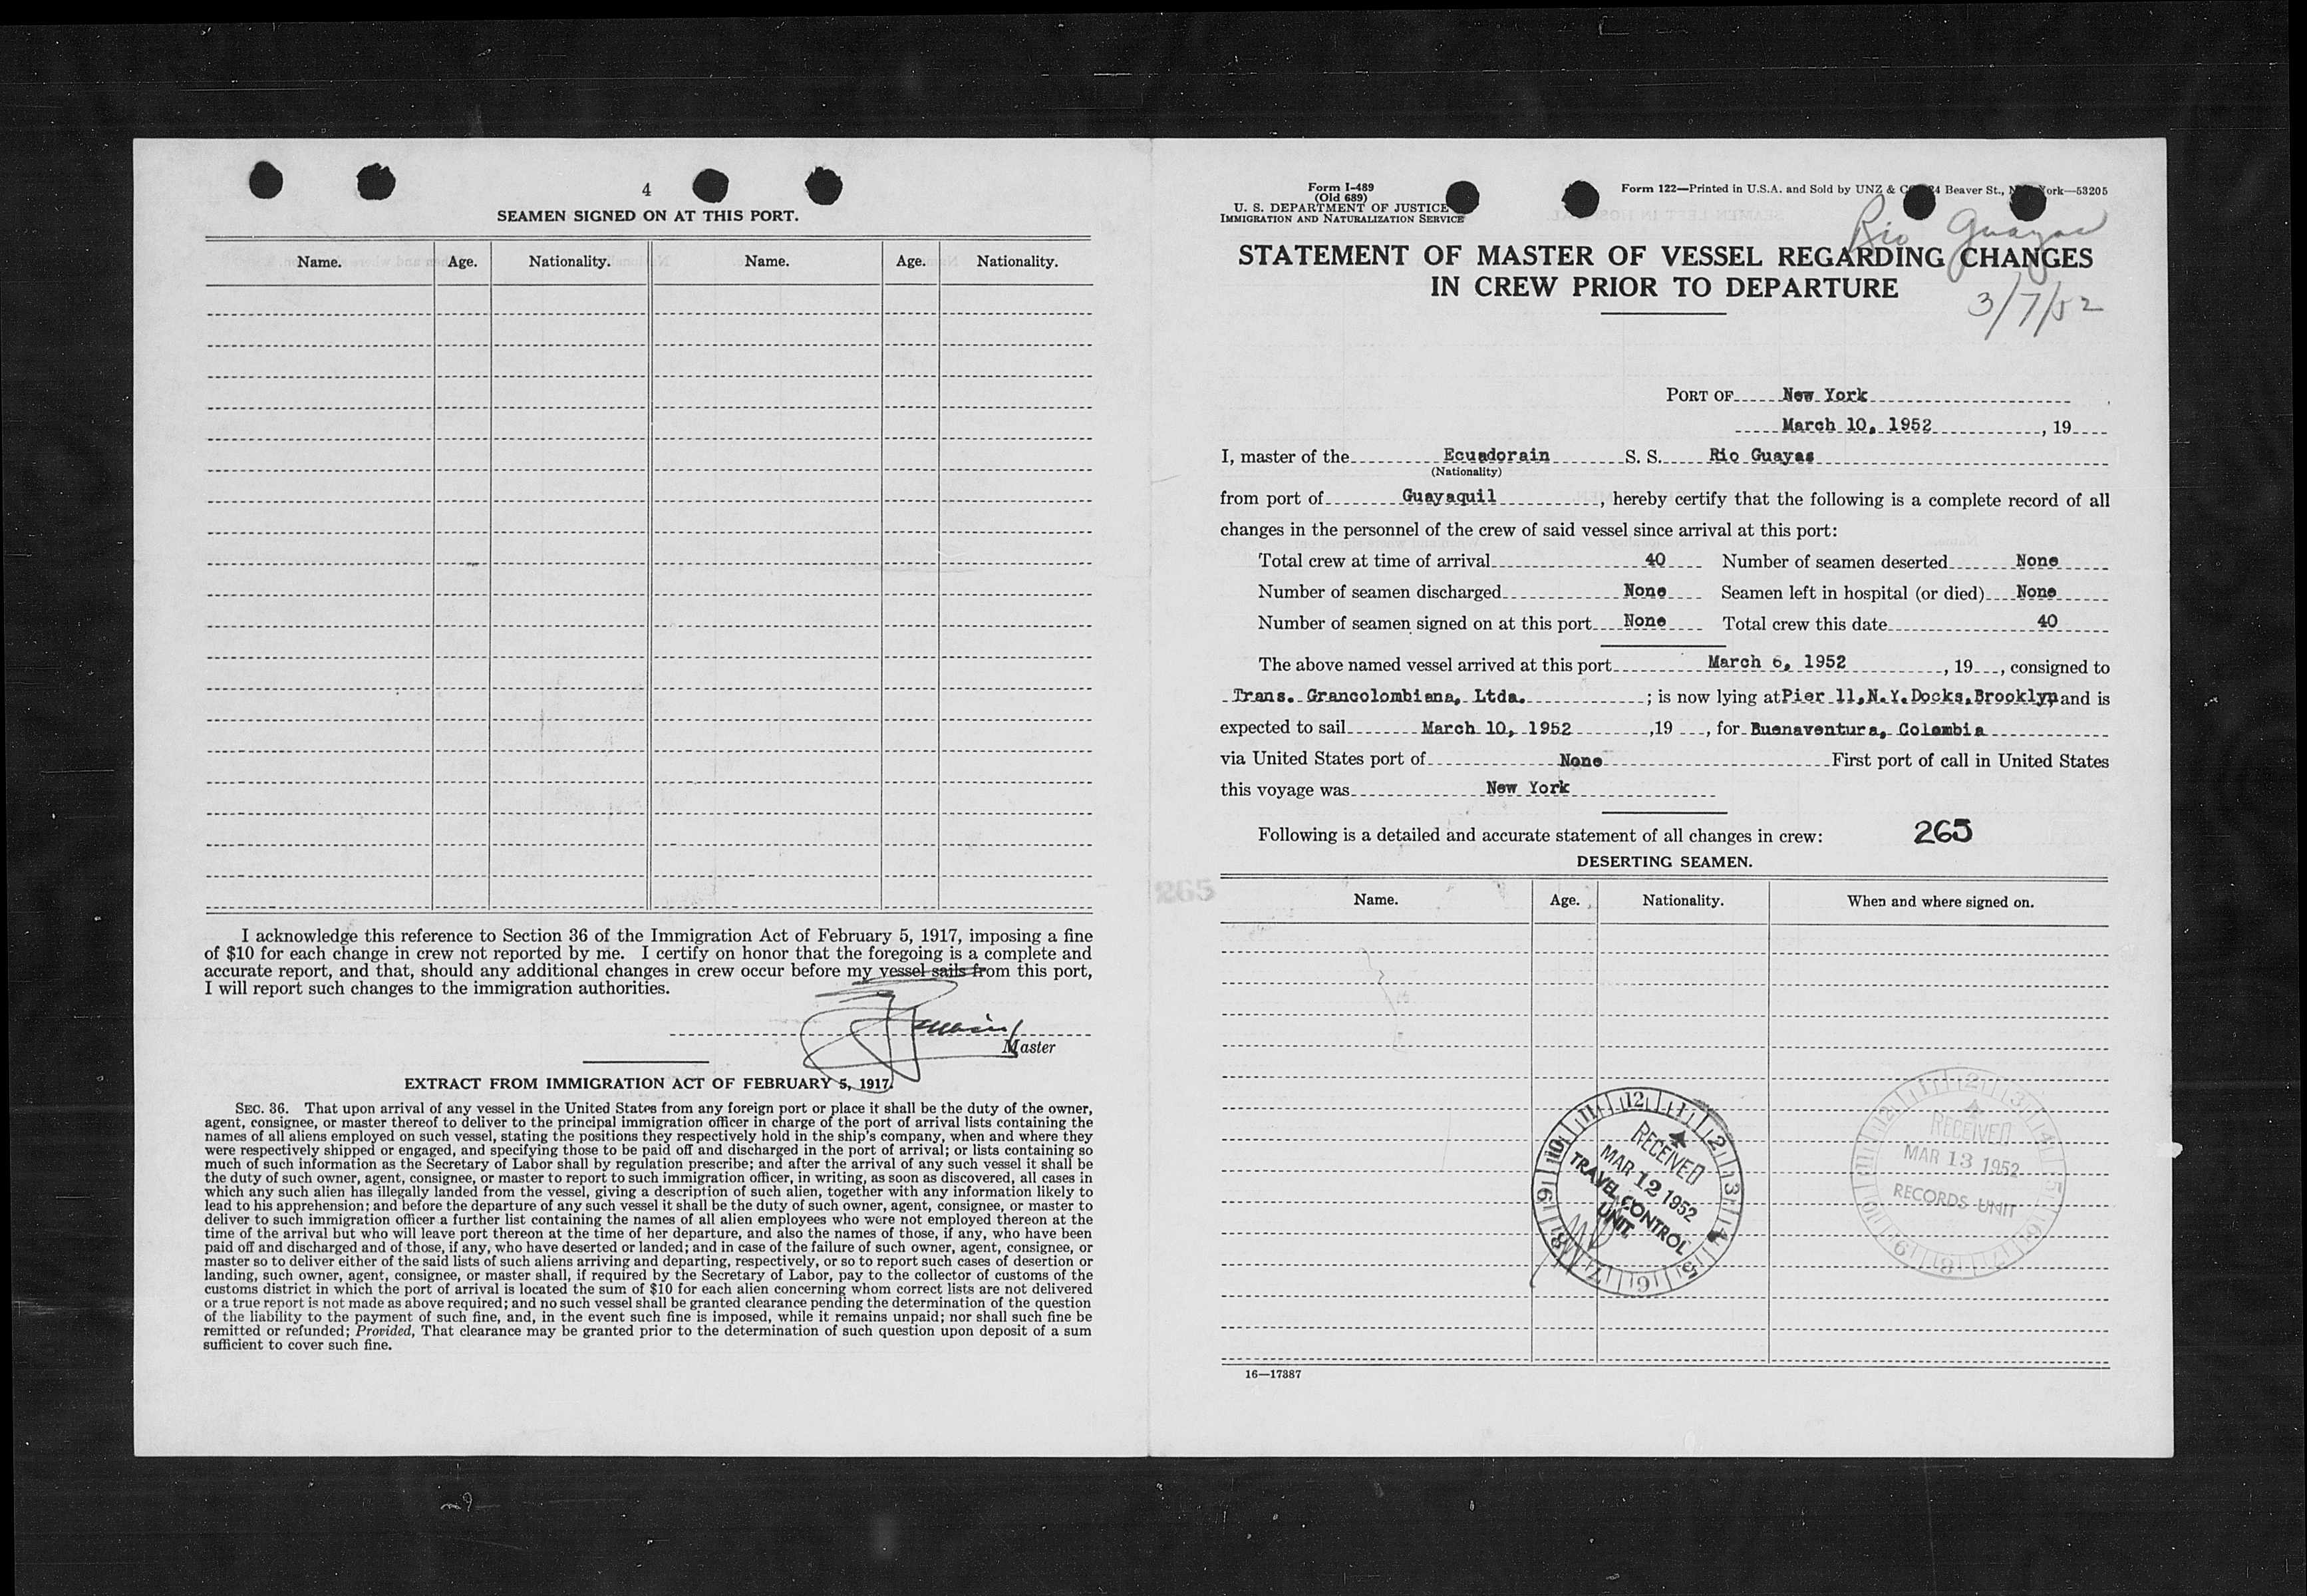 4
SEAMEN SIGNED ON AT THIS PORT.
Name. Age. Nationality. Name. Age. Nationality.
I acknowledge this reference to Section 36 of the Immigration Act of February 5, 1917, imposing a fine
of $10 for each change in crew not reported by me. I certify on honor that the foregoing is a complete and
accurate report, and that, should any additional changes in crew occur before my vessel sails from this port,
I will report such changes to the immigration authorities.
Master
EXTRACT FROM IMMIGRATION ACT OF FEBRUARY 5, 1917.
SEC. 36. That upon arrival of any vessel in the United States from any foreign port or place it shall be the duty of the owner,
agent, consignee, or master thereof to deliver to the principal immigration officer in charge of the port of arrival lists containing the
names of all aliens employed on such vessel, stating the positions they respectively hold in the ship's company, when and where they
were respectively shipped or engaged, and specifying those to be paid off and discharged in the port of arrival; or lists containing so
much of such information as the Secretary of Labor shall by regulation prescribe; and after the arrival of any such vessel it shall be
the duty of such owner, agent, consignee, or master to report to such immigration officer, in writing, as soon as discovered, all cases in
which any such alien has illegally landed from the vessel, giving a description of such alien, together with any information likely to
lead to his apprehension; and before the departure of any such vessel it shall be the duty of such owner, agent, consignee, or master to
deliver to such immigration officer a further list containing the names of all alien employees who were not employed thereon at the
time of the arrival but who will leave port thereon at the time of her departure, and also the names of those, if any, who have been
paid off and discharged and of those, if any, who have deserted or landed; and in case of the failure of such owner, agent, consignee, or
master so to deliver either of the said lists of such aliens arriving and departing, respectively, or so to report such cases of desertion or
landing, such owner, agent, consignee, or master shall, if required by the Secretary of Labor, pay to the collector of customs of the
customs district in which the port of arrival is located the sum of $10 for each alien concerning whom correct lists are not delivered
or a true report is not made as above required; and no such vessel shall be granted clearance pending the determination of the question
of the liability to the payment of such fine, and, in the event such fine is imposed, while it remains unpaid; nor shall such fine be
remitted or refunded; Provided, That clearance may be granted prior to the determination of such question upon deposit of a sum
sufficient to cover such fine.
Form I-489
(Old 689)
U. S. DEPARTMENT OF JUSTICE
IMMIGRATION AND NATURALIZATION SERVICE
Form 122—Printed in U.S.A. and Sold by UNZ & Beaver St., 53205
Rio Guayas
STATEMENT OF MASTER OF VESSEL REGARDING CHANGES
IN CREW PRIOR TO DEPARTURE
3/7/52
PORT OF New York
March 10, 1952, 19
I, master of the Ecuadorain S. S. Rio Guayas
(Nationality)
from port of Guayaquil, hereby certify that the following is a complete record of all
changes in the personnel of the crew of said vessel since arrival at this port:
Total crew at time of arrival 40 Number of seamen deserted None
Number of seamen discharged None Seamen left in hospital (or died) None
Number of seamen signed on at this port None Total crew this date 40
The above named vessel arrived at this port March 6, 1952, 19, consigned to
Trans. Grancolombiana, Ltda.; is now lying at Pier 11, N.Y. Docks, Brooklyn, and is
expected to sail March 10, 1952, 19, for Buenaventura, Colombia
via United States port of None First port of call in United States
this voyage was New York
Following is a detailed and accurate statement of all changes in crew: 265
DESERTING SEAMEN.
265
Name. Age. Nationality. When and where signed on.
12 1 2 3 4 5 6 7 8 9 10 11
RECEIVED
MAR 12 1952
TRAVEL CONTROL
UNIT
12 1 2 3 4 5 6 7 8 9 10 11
RECEIVED
MAR 13 1952
RECORDS UNIT
16—17387